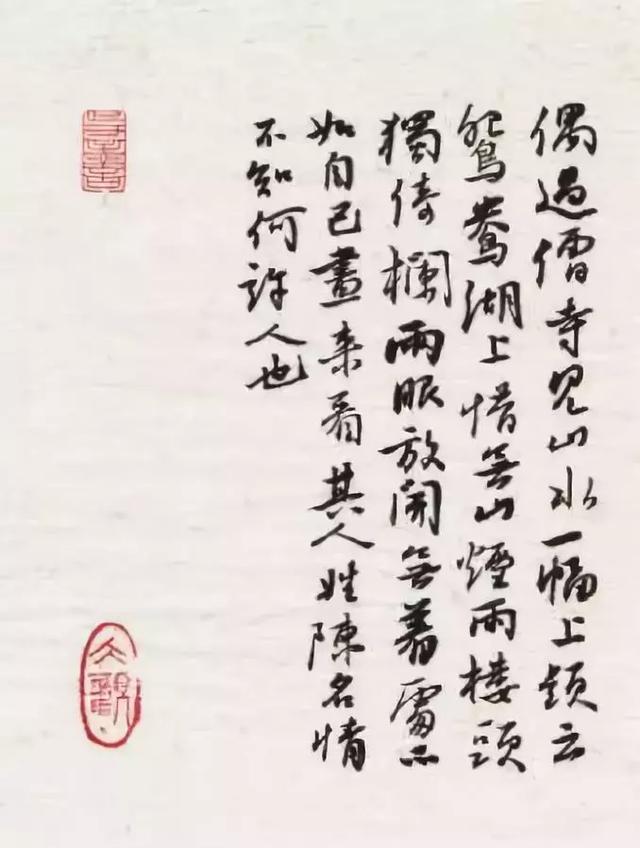 偶過僧寺見山水一幅上題云
鴛鴦湖上惜無山煙雨樓頭
獨倚欄兩眼放開無著處不
如自己畫来看其人姓陳名情
不知何許人也